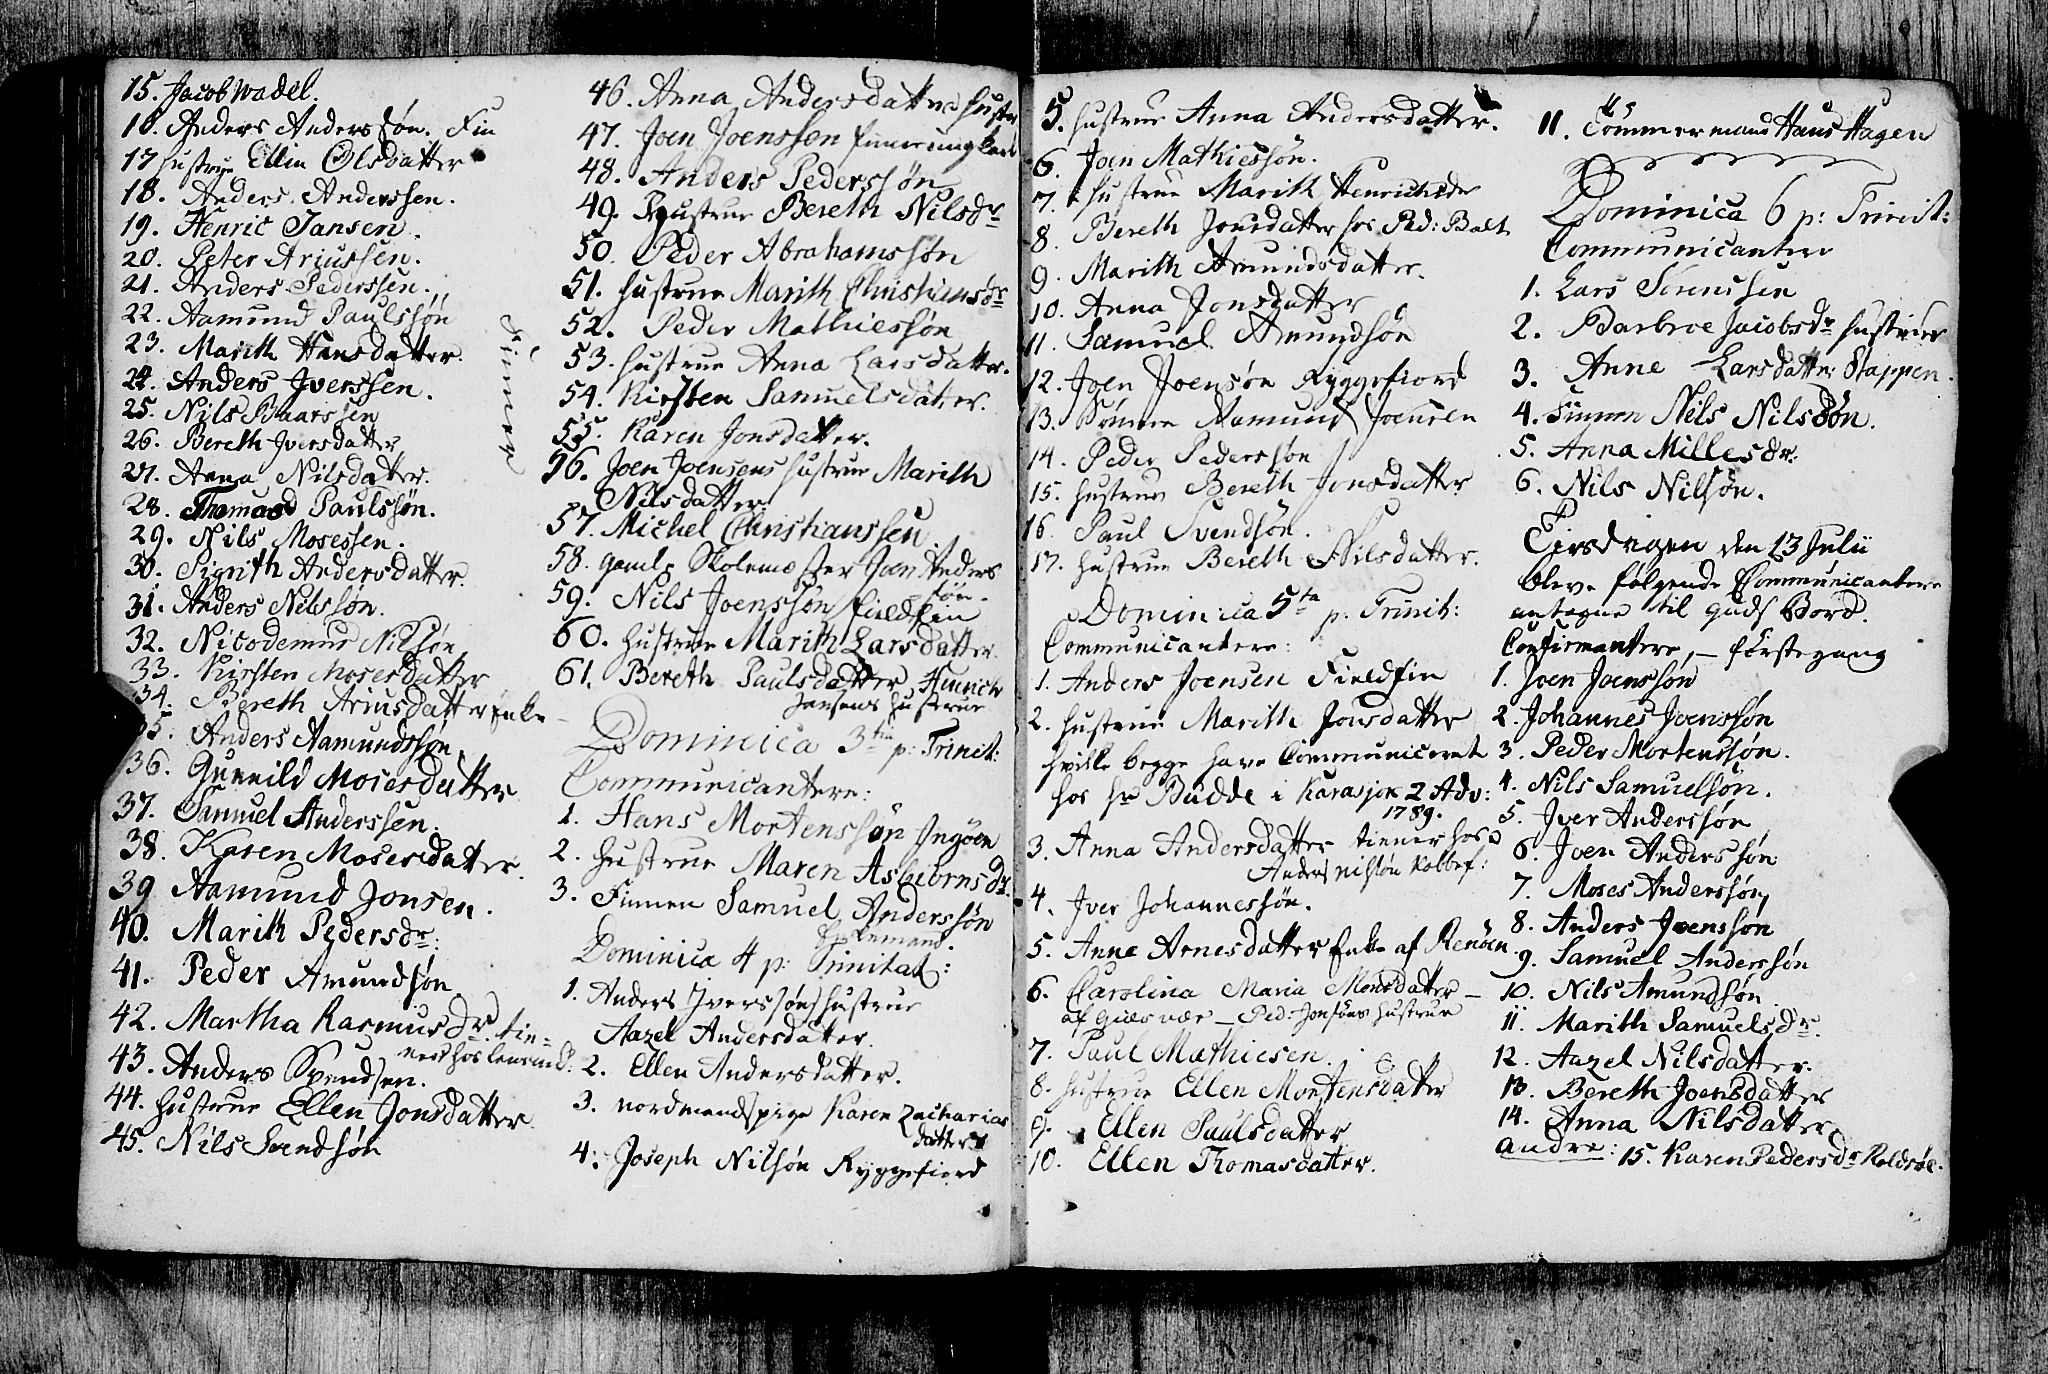 15. Jacob Wadel.
16. Anders Anderssøn. Fin
17 hustrue Ellin Olsdatter
18. Anders Anderssen.
19. Henric Jansen.
20. Peter Ariussen.
21. Anders Pederssen.
22. Aamund Paulssøn
23. Marith Hansdatter.
24. Anders Iverssen.
25. Nils Baarssen
26. Bereth Iversdatter
27. Anna Nilsdatter.
28. Thomas Paulssøn.
29. Nils Mosessen.
30. Sigrith Andersdatter.
31. Anders Nilssøn.
32. Nicodemus Nilssøn
33. Kirsten Mosesdatter
34. Bereth Ariusdatter Enke
35. Anders Aamundssøn
36. Gunnild Mosesdatter
37. Samuel Anderssen.
38. Karen Mosesdatter.
39 Aamund Jonsen.
40. Marith Pedersdr:
41. Peder Amundsøn
42. Martha Rasmusdr. tie-
ner hos
43. Anders Svendsen.
44. hustrue Ellen Jonsdatter
45. Nils Svendsøn
Finner
46. Anna Andersdatter hustru
47. Joen Joenssen finnerungkarl
48. Anders Pederssøn
49. Hustrue Bereth Nilsdr
50. Peder Abrahamssøn
51. hustrue Marith Christiansdr
52. Peder Mathiessøn
53. hustrue Anna Larsdatter.
54. Kirsten Samuelsdatter.
55. Karen Jonsdatter.
56. Joen Joensens hustrue Marith
Nilsdatter
57. Michel Christianssen
58. gamle Skolemester Joen Anders
søn.
59. Nils Joenssøn fieldfin
60. hustrue Marith Larsdatter
61. Bereth Paulsdatter Hinrich
Jansens hustrue
Dominica 3tia p: Trinit:
Communicantere:
1. Hans Mortenssøn Ingøen
2. hustrue Maren Asbiørnsdr.
3. Finnen Samuel Anderssøn
Dominica 4 p: Trinitat:
1. Anders Iverssøns hustrue
Aazel Andersdatter.
2. Ellen Andersdatter.
3. nordmands pige Karen Zacharias
datter
4. Joseph Nilsøn Ryggefiord
5. hustrue Anna Andersdatter.
6. Joen Mathiessøn.
7. hustrue Marith Henrichsdr
8. Bereth Jonsdatter hos Ped: Balt
9. Marith Amundsdatter.
10. Anna Jonsdatter
11. Samuel Amundsøn
12. Joen Joensøn Ryggefiord
13. Sønnen Aamund Joensen
14. Peder Pederssøn
15. hustrue Bereth Jonsdatter
16. Paul Svendsøn.
17. hustrue Bereth Nilsdatter.
Dominica 5ta p: Trinit:
Communicantere:
1. Anders Joensen Fieldfin
2. hustrue Marith Jonsdatter
hvilke begge have Communiceret
hos hr Budde i Karasjok 2 Adv:
1789.
3. Anna Andersdatter tiener hos
Anders Nilsøn Kobbef:
4. Iver Johannessøn.
5. Anne Arnesdatter Enke af Renøen
6. Carolina Maria Monsdatter –
af Giesvær – Ped: Jonsøns hustrue
7. Paul Mathiesen.
8. hustrue Ellen Mortensdatter
9. Ellen Paulsdatter
10. Ellen Thomasdatter.
11. Tømmermand Hans Hagen
Dominica 6 p: Trinit:
Communicantere
1. Lars Sørenssen
2. Barbroe Jacobsdr hustrue
3. Anne Larsdatter Stappen.
4. Finnen Nils Nilssøn.
5. Anna Millesdr:
6. Nils Nilsøn.
Tirsdagen den 13 Julii
bleve følgende Communicantere
antagne til Guds Bord.
Confirmantere, – første gang
1. Joen Joenssøn
2. Johannes Joenssøn
3. Peder Mortenssøn.
4. Nils Samuelsøn.
5. Iver Anderssøn
6. Joen Anderssøn
7. Moses Anderssøn
8. Anders Joenssøn
9. Samuel Anderssøn
10. Nils Amundsøn
11. Marith Samuelsdr.
12. Aazel Nilsdatter.
13. Bereth Joensdatter
14. Anna Nilsdatter
andre: 15. Karen Pedersdr